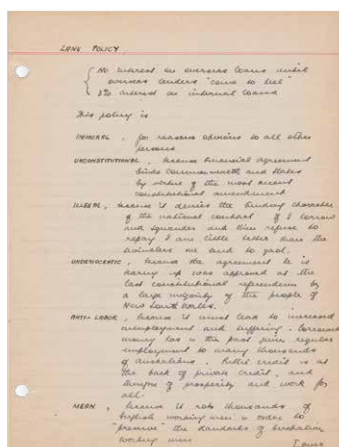 LANG POLICY
{ No interest on overseas loans until
overseas lenders "come to heel"
3% interest on internal loans
This policy is
IMMORAL, for reasons obvious to all other
persons
UNCONSTITUTIONAL, because Financial Agreement
binds Commonwealth and States
by virtue of the most recent
constitutional amendment
ILLEGAL, because it denies the binding character
of the national contract. If I borrow
and squander and then refuse to
repay I am little better than the
who are sent to gaol.
UNDEMOCRATIC, because the agreement he is
tearing up was approved at the
last constitutional referendum by
a large majority of the people of
New South Wales.
ANTI-LABOR, because it must lead to increased
unemployment and suffering. Borrowed
money has in the past given regular
employment to many thousands
of Australians. Public credit is at
the back of private credit, and
therefore of prosperity and work for
all.
MEAN, because it robs thousands of
English working men in order to
"preserve" the standards of Australian
working men.